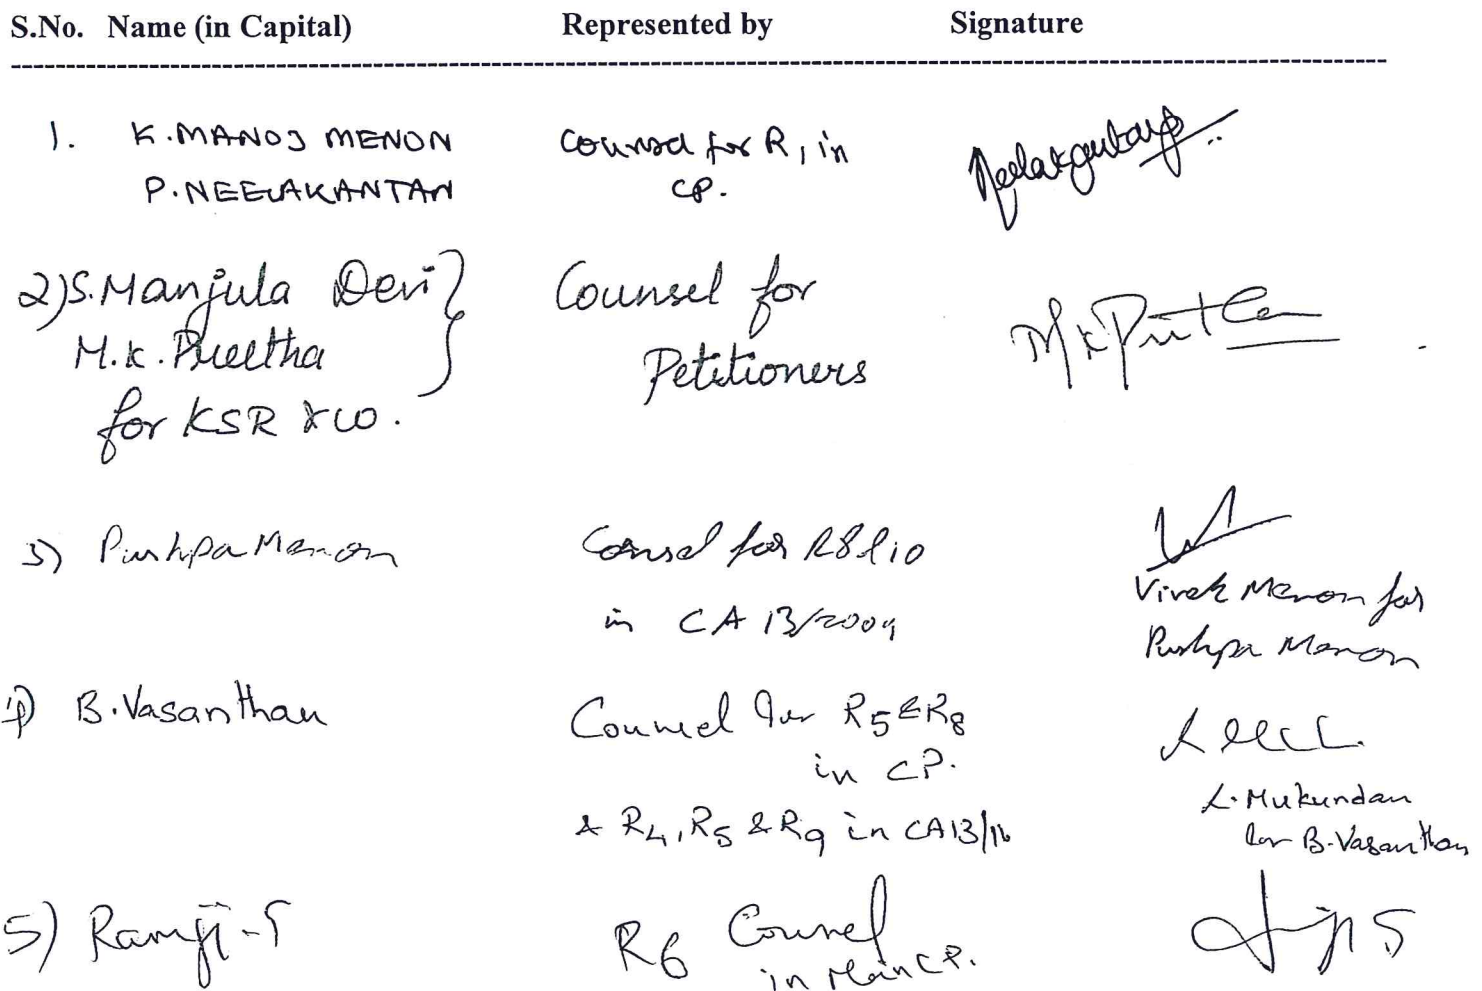 S.No. Name (in Capital) Represented by Signature
1. K.MANOJ MENON Counsel for R1 in
P.NEELAKANTAN CP.
Neelakantan
2) S.Manjula Devi } Counsel for
M.K.Preetha Petitioners
for KSR & Co.
MKPreetha
3) Pushpa Menon Counsel for R8 & 10
in CA 13/2009
Vivek Menon for
Pushpa Menon
4) B.Vasanthan Counsel for R5 & R8
in CP.
& R4, R5 & R9 in CA13/16
L.Mukundan
for B.Vasanthan
5) Ramji-S R6 Counsel
in Main CP.